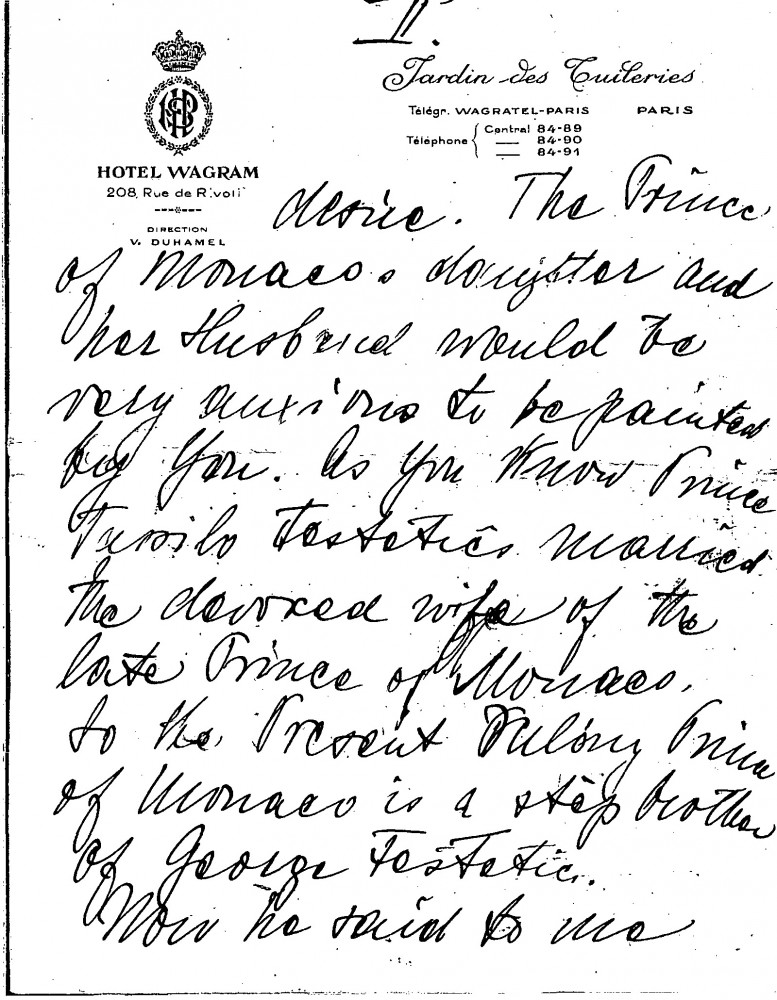 II.
HOTEL WAGRAM
208, Rue de Rivoli
DIRECTION
V. DUHAMEL
Jardin des Tuileries
Télégr. WAGRATEL-PARIS PARIS
Téléphone { Central 84-89
— 84-90
— 84-91
desire. The Prince
of Monaco s daughter and
her Husband would be
very anxious to be painted
by You. As You Know Prince
Tassilo Festetics married
the devoced wife of the
late Prince of Monaco.
So the Present Ruling Prince
of Monaco is a step brother
of George Festetics.
Now he said to me